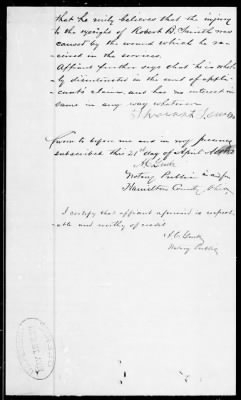 that he verily believes that the injury
to the eyesight of Robert D. Smith was
caused by the wound which he re-
ceived in the services.
Affiant further says that he is whol-
ly disinterested in the event of appli-
cants claim and has no interest in
same in any way whatever
Sworn to before me and in my presence
subscribed this 21st day of April
Notary Public in & for
Hamilton County Ohio
I certify that affiant aforesaid is respect-
able and worthy of credit
Notary Public